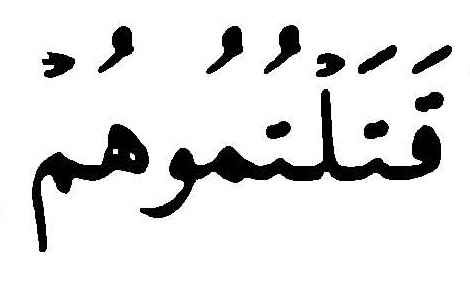 قَتَلْتُمُوهُمْ